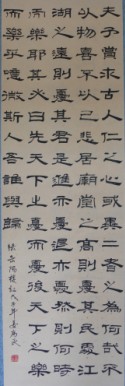 夫予嘗求古仁人之心或異二者之為何哉不
以物喜不以己悲居廟堂之高則憂其民處江
湖之遠則憂其君是進亦憂退亦憂然則何時
而樂耶其必曰先天下之憂而憂後天下之樂
而樂乎噫微斯人吾誰與歸
岳陽樓記